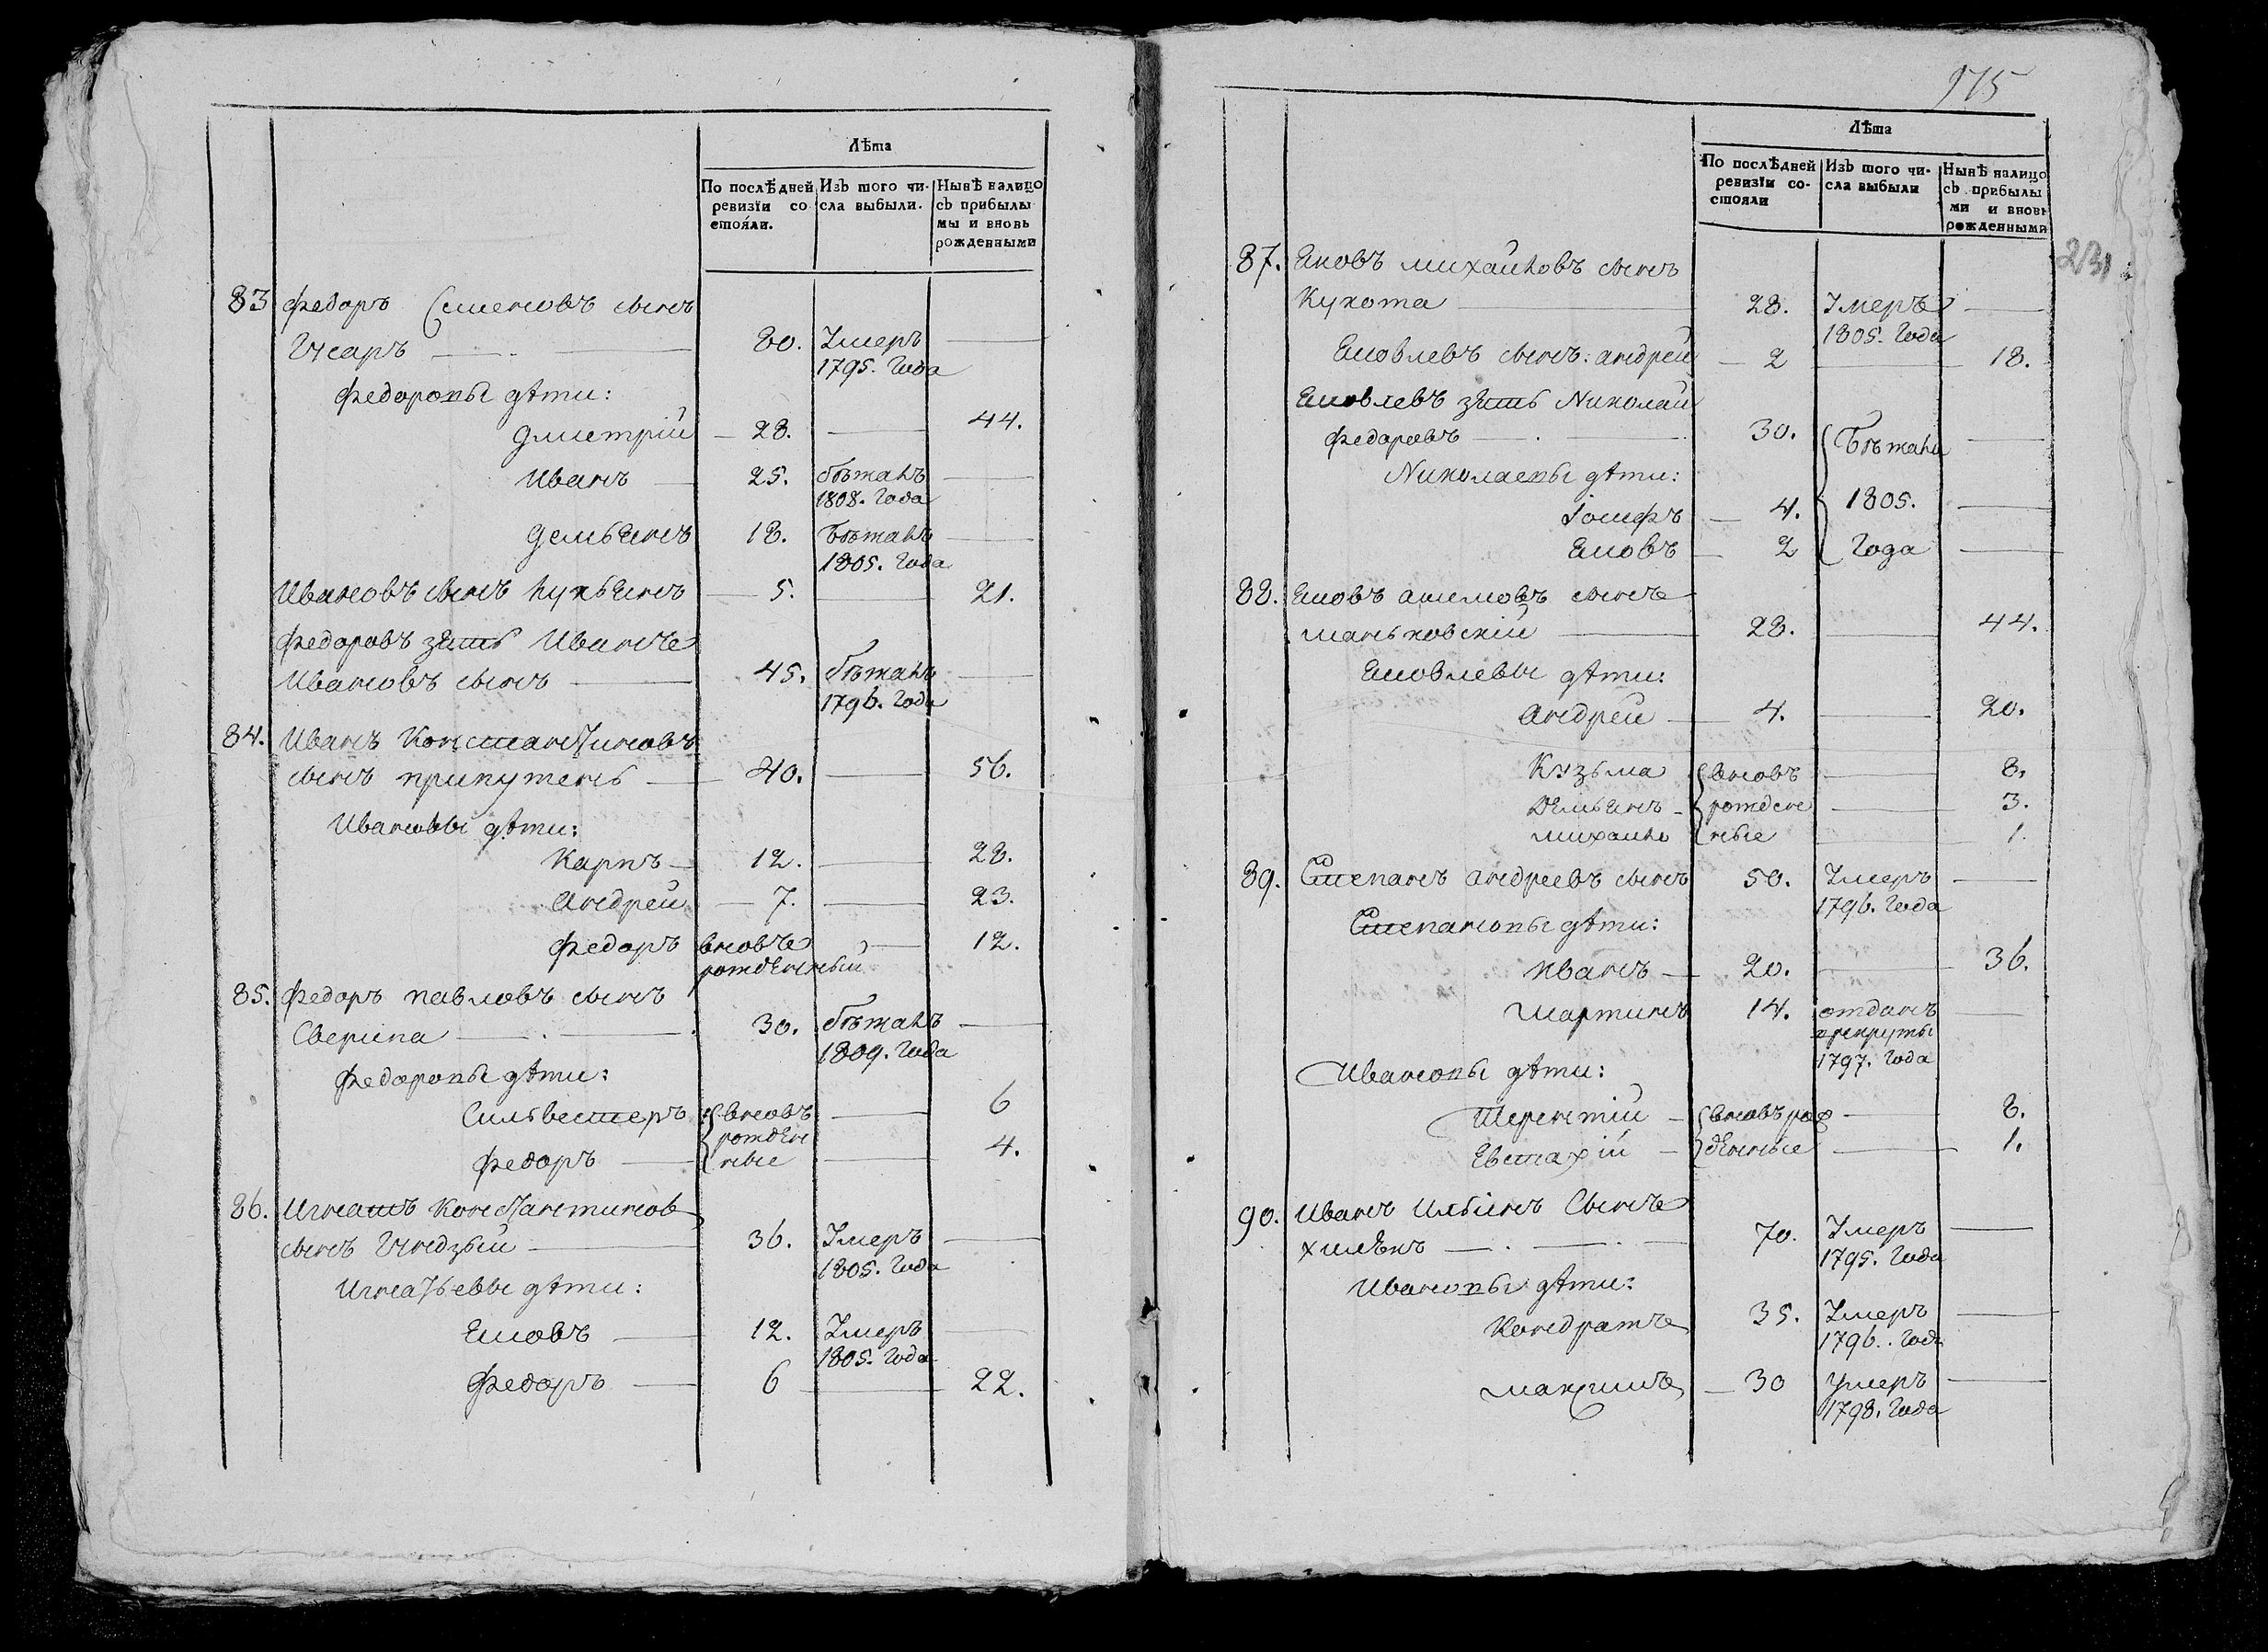 Лѣта
По послѣдней ревизїи со стояли.
Изъ того числа выбыли.
Нынѣ налицо съ прибылы мы и вновь рожденными
83 Федоръ Семеновъ сынъ
80. Умеръ
1795. Года
Федоровы дѣти:
Дмитрій — 28. — 44.
Иванъ — 25. бѣжалъ —
1808. Года
Демьянъ 18. бѣжалъ —
1805. Года
Ивановъ сынъ Лукьянъ — 5. — 21.
Федоровъ зять Иванъ
Ивановъ сынъ — 45. бѣжалъ —
1796. Года
84. Иванъ Константиновъ
сынъ Припутень — 40. — 56.
Ивановы дѣти:
Карпъ — 12. — 28.
Андрей — 7. — 23.
Федоръ вновь — 12.
рожденный
85. Федоръ Павловъ сынъ
Сверипа — 30. бѣжалъ —
1809. Года
Федоровы дѣти:
Сильвестеръ вновъ — 6
рожден
Федоръ — ные — 4.
86. Игнатъ Константинов
сынъ — 36. Умеръ —
1805. Года
Игнатьевы дѣти:
Яковъ — 12. Умеръ —
1805. Года
Федоръ — 6 — 22.
975
Лѣта
По послѣдней ревизїи состояли
Изъ того числа выбыли
Нынѣ налицо съ прибылы ми и вновь рожденными
231
87. Яковъ Михайловъ сынъ
Кукота — 28. Умеръ —
1805. Года
Яковлевъ сынъ: Андрей — 2 — 18.
Яковлевъ зять Николай
Федоровъ — 30. Бѣжали —
Николаевы дѣти:
Іосифъ — 4. 1805. —
Яковъ — 2 Года —
88. Яковъ Акимовъ сынъ
Маньковскій — 28. — 44.
Яковлевы дѣти:
Андрей — 4. — 20.
Кузьма вновъ — 8.
Демьянъ — рожден — 3.
Михаило ные 1.
89. Степанъ Андреевъ сынъ 50. Умеръ —
1796. Года
Степановы дѣти:
Иванъ — 20. — 36.
Мартинъ 14. отданъ —
в рекруты
1797. Года
Ивановы дѣти:
Терентій — вновъ рож — 8.
Евстахій — денные — 1.
90. Иванъ Ильинъ Сынъ
Хилѣкъ — 70. Умеръ —
1795. Года
Ивановы дѣти:
Кондратъ 35. Умеръ —
1796. Года
Максимъ — 30 умеръ —
1798. Года